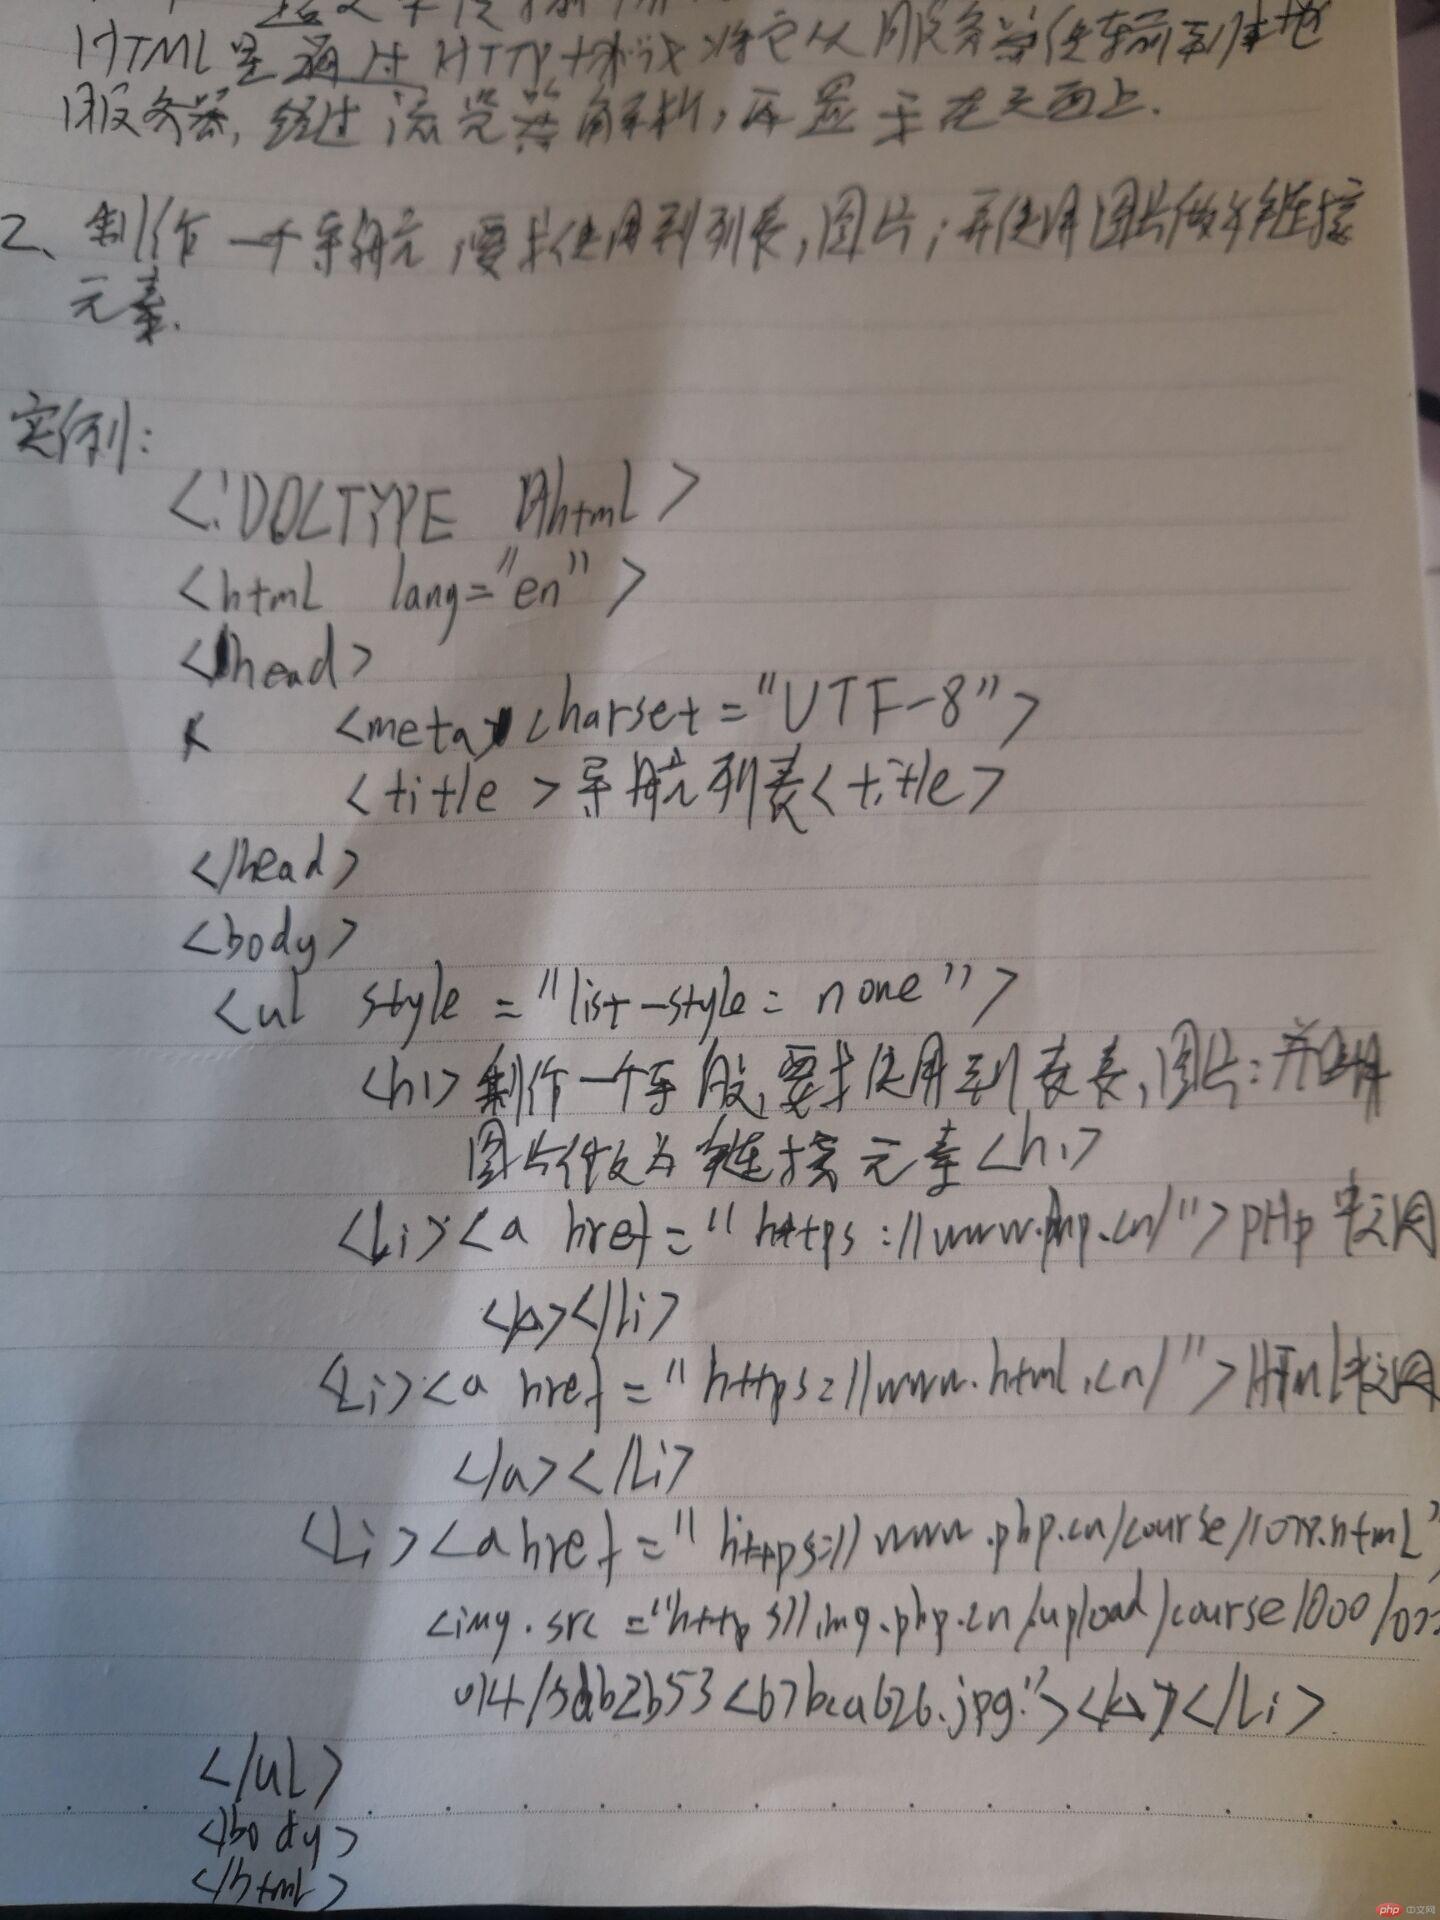 HTML是通过HTTP协议将它从服务器传输到本地
服务器,经过浏览器解析,再显示在页面上.
2、制作一个导航,要求使用到列表,图片;并使用图片做为链接
元素.
实例:
<!DOCTYPE html>
<html lang="en">
<head>
<meta charset="UTF-8">
<title>导航列表<title>
</head>
<body>
<ul style="list-style: none">
<h1>制作一个导航,要求使用到表表,图片:并使用
图片做为链接元素<h1>
<li><a href="https://www.php.cn/">pHp中文网
</a></li>
<li><a href="https://www.html.cn/">HTML中文网
</a></li>
<li><a href="https://www.php.cn/course/1077.html"
<img.src="https//img.php.cn/upload/course/000/
014/5dbb2b53<67bca626.jpg"></a></li>
</ul>
</body>
</html>
php 中文网